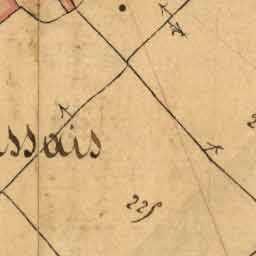 ssais
225